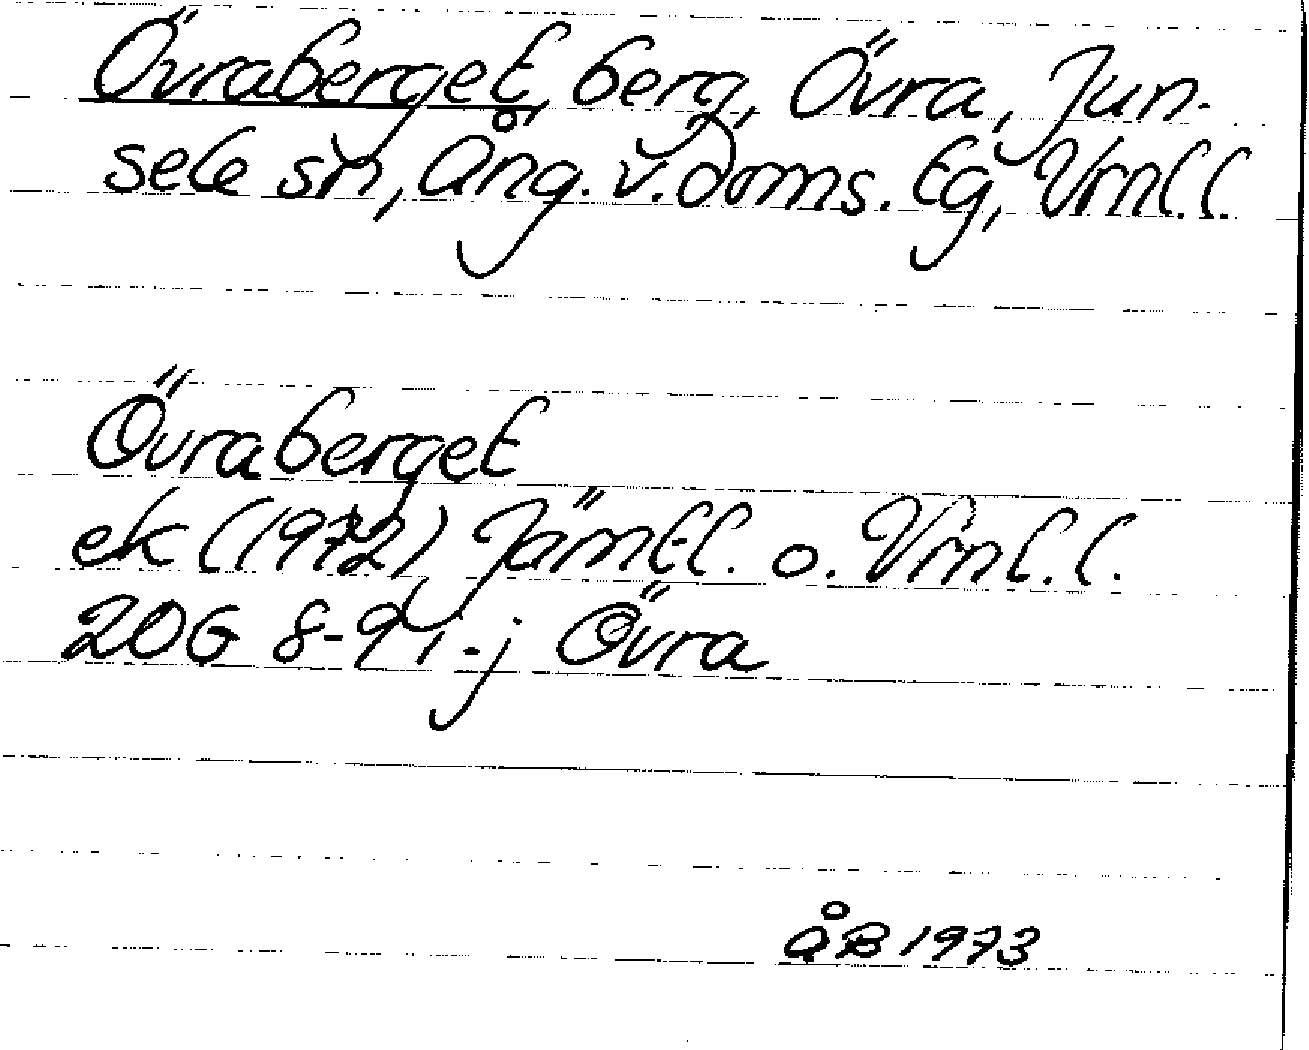 Övraberget, berg, Övra, Jun-
sele sn, Ång. v. doms. tg, Vrnl.l.
Övraberget
ek (1972) Jämtl.l. o. Vrnl.l.
20G 8-9 i-j Övra
ÅB 1973